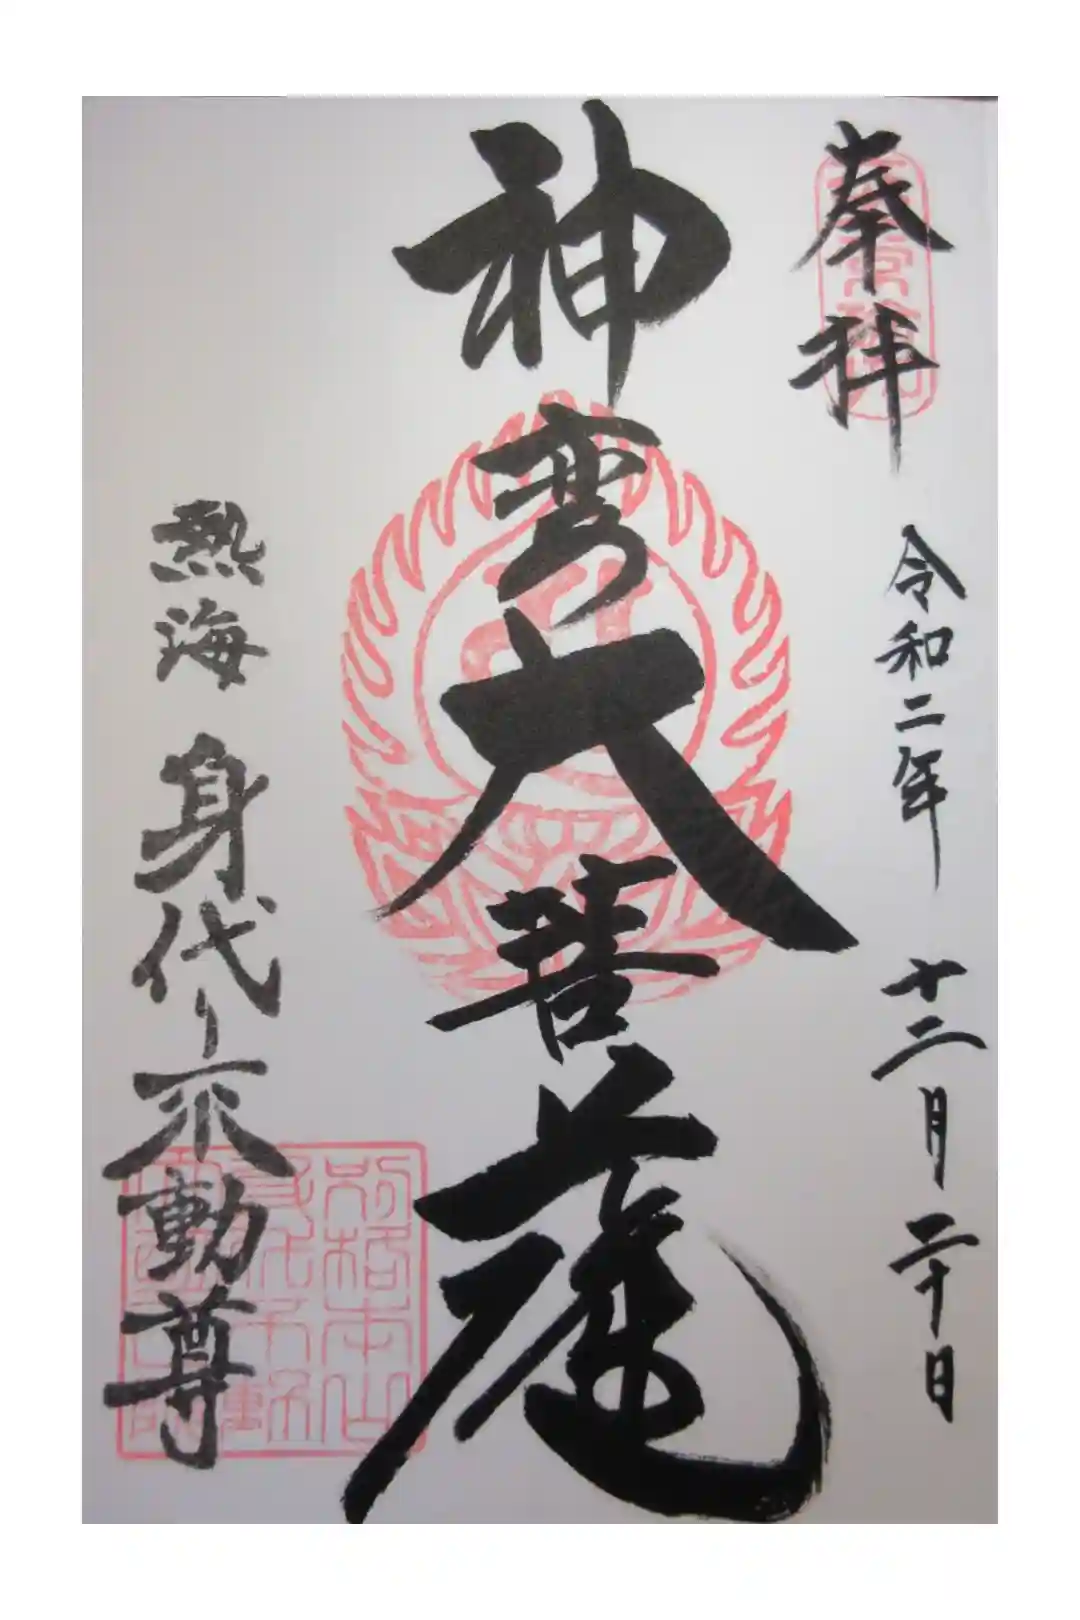 奉拝
令和二年 十二月 二十日
神弯大菩薩
熱海 身代り不動尊
別格本山